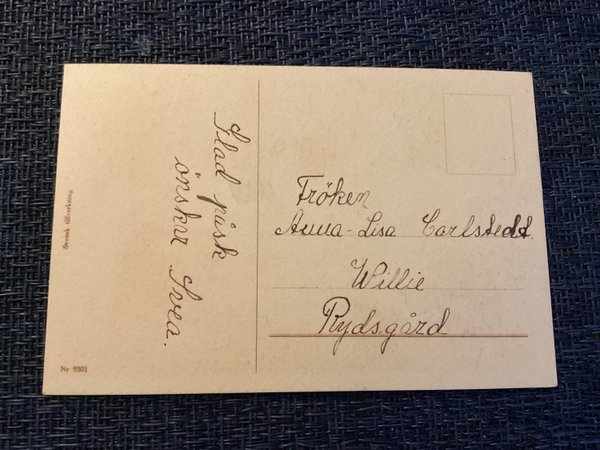 Glad påsk
önskar Svea.
Fröken
Anna-Lisa Carlstedt.
Willie
Rydsgård
Svensk tillverkning
Nr 9301